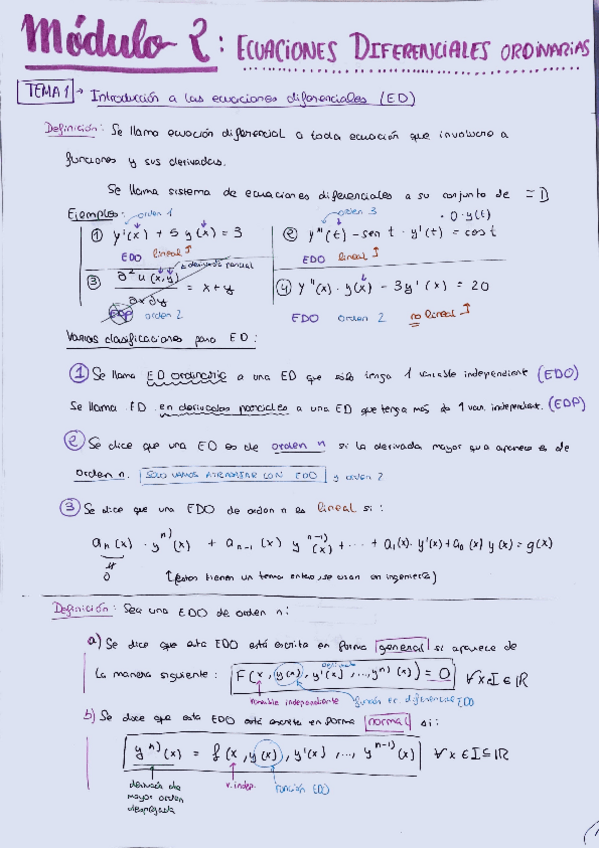 Módulo 2: ECUACIONES DIFERENCIALES ORDINARIAS
TEMA 1 → Introducción a las ecuaciones diferenciales (ED)
Definición: Se llama ecuación diferencial a toda ecuación que involucre a
funciones y sus derivadas.
Se llama sistema de ecuaciones diferenciales a su conjunto de = D
Ejemplos: orden 1 orden 3 · 0·y(t)
① y'(x) + 5 y(x) = 3 ② y'''(t) - sen t · y'(t) = cos t
EDO lineal EDO lineal
③ ∂²u(x,y) / ∂x∂y = x + y derivada parcial ④ y''(x) · y(x) - 3y'(x) = 20
EDP orden 2 EDO orden 2 no lineal
Vamos clasificaciones para ED:
① Se llama ED ordinaria a una ED que sólo tenga 1 variable independiente (EDO)
Se llama ED en derivadas parciales a una ED que tenga más de 1 var. independient. (EDP)
② Se dice que una ED es de orden n si la derivada mayor que aparece es de
orden n. SOLO VAMOS A TRABAJAR CON EDO y orden 2
③ Se dice que una EDO de orden n es lineal si:
aₙ(x) · yⁿ⁾(x) + aₙ₋₁(x) yⁿ⁻¹⁾(x) + ... + a₁(x)· y'(x) + a₀(x) y(x) = g(x)
≠
0 (estos tienen un tema entero, se usan en ingeniería)
Definición: Sea una EDO de orden n:
a) Se dice que esta EDO está escrita en forma general si aparece de
la manera siguiente: F(x, y(x), y'(x), ..., yⁿ⁾(x)) = 0 ∀x∈I⊆ℝ
variable independiente
b) Se dice que esta EDO está escrita en forma normal si:
yⁿ⁾(x) = f(x, y(x), y'(x), ..., yⁿ⁻¹⁾(x) ∀x∈I⊆ℝ
derivada de v. indep. función EDO
mayor orden
despejada